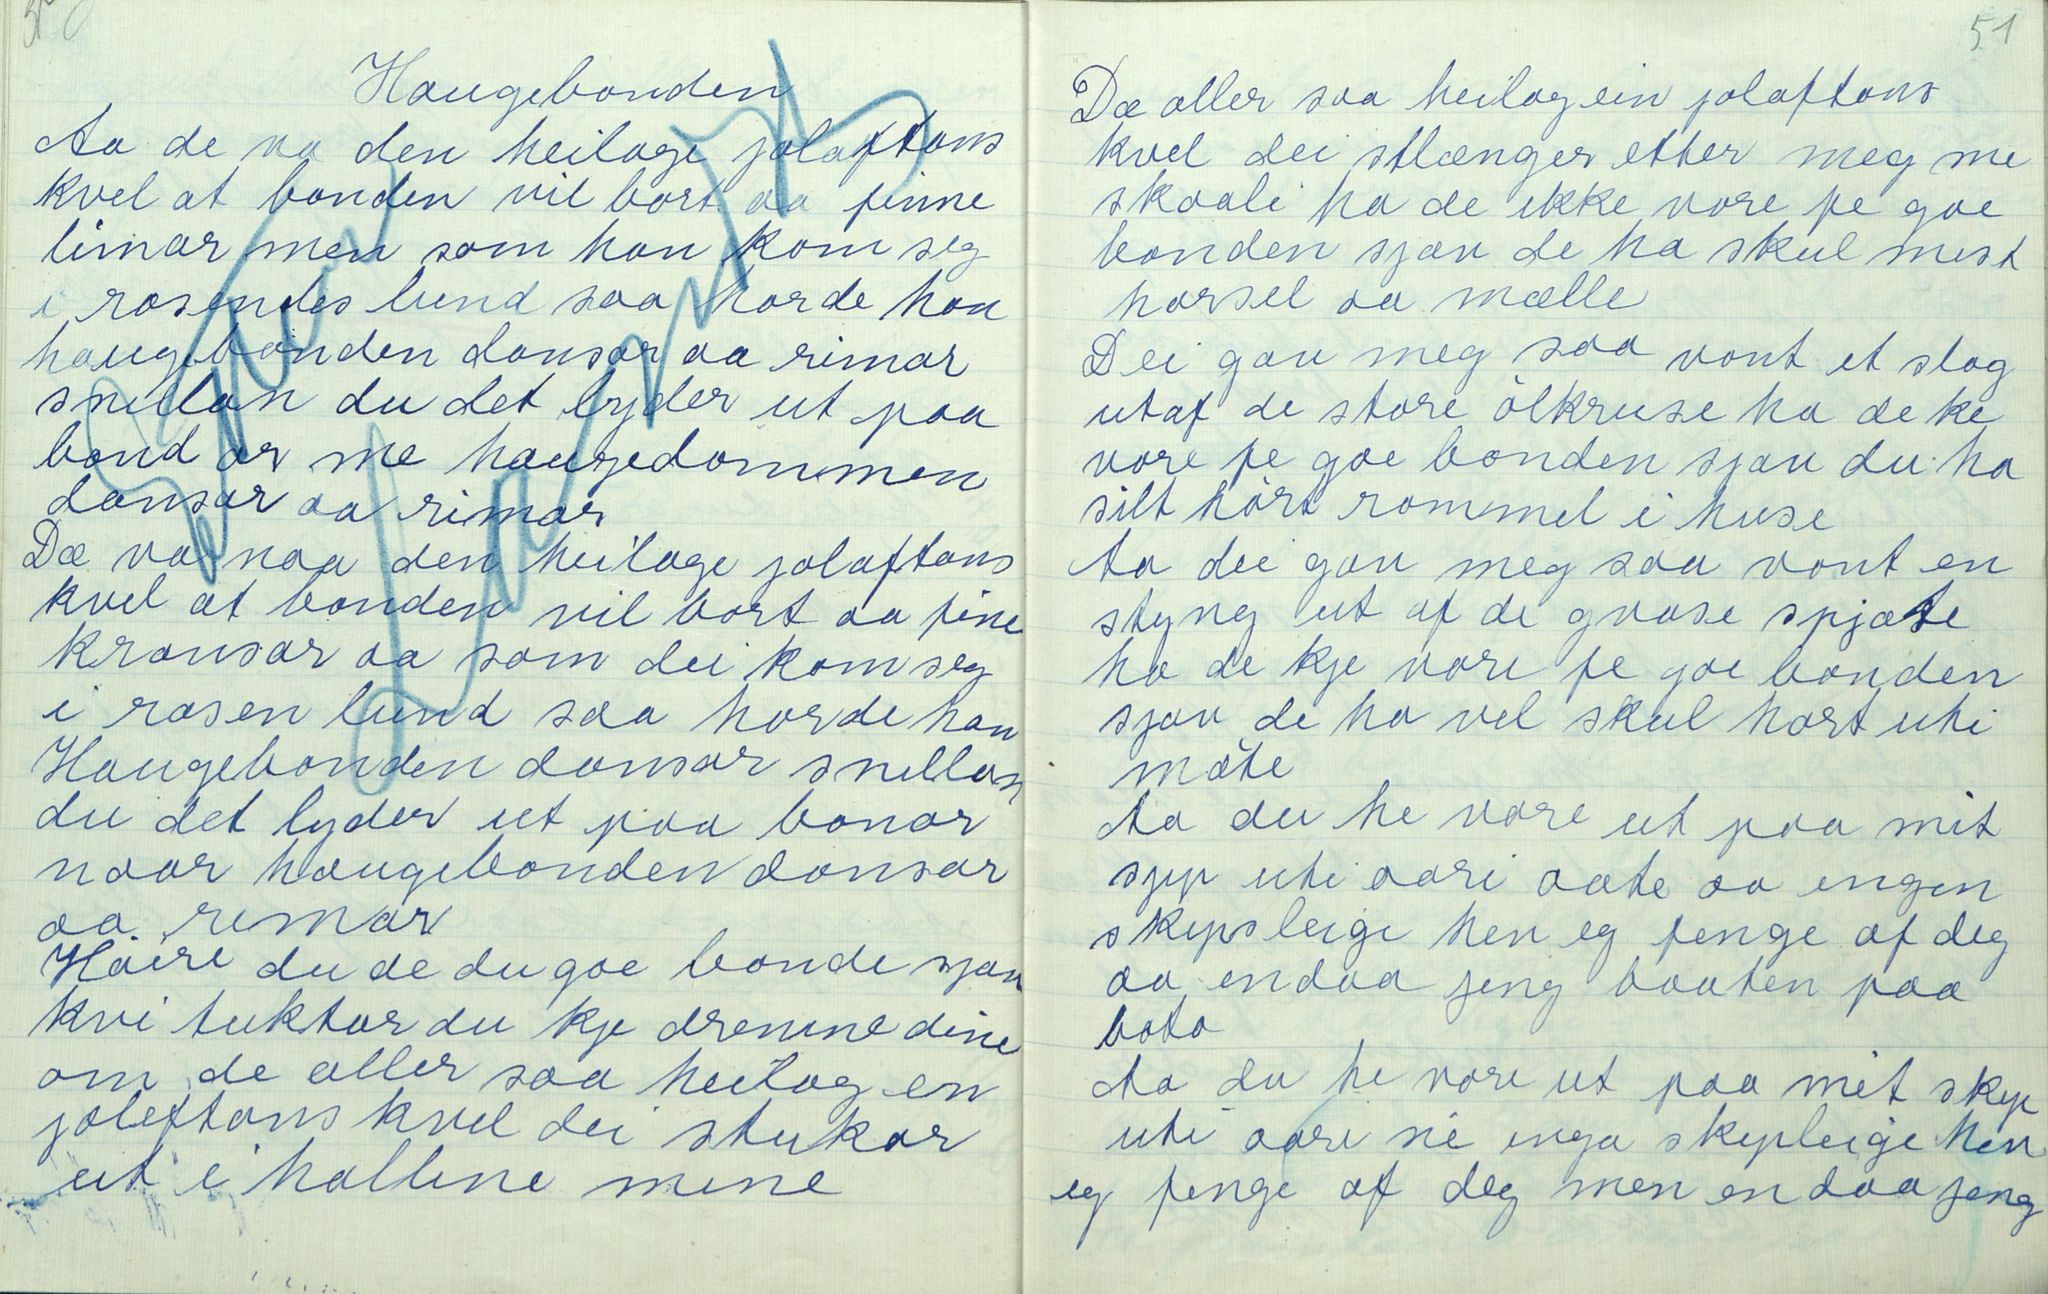 Haugebonden
Aa de va den heilage jolaftans
kvel at bonden vil bort aa finne
limar men som han kom seg
i rosendes lund saa horde han
haugebonden dansar aa rimar
snillan du det lyder ut paa
bond ar me haugedommen
dansar aa rimar
Dæ va naa den heilage jolaftans
kvel at bonden vil bort aa fine
kransar aa som dei kom seg
i rosen lund saa horde han
Haugebonden dansar snillan
du det lyder ut paa bonar
naar haugebonden dansar
aa rimar
Höire du de du goe bonde sjav
kvi tuktar du kje drenine dine
om de aller saa heilag en
joleftans kvel dei stukar
ut i hallene mine
51
Dæ aller saa heilag ein jolaftans
kvel dei slænger etter meg me
skaali ha de ikke vore fe goe
bonden sjav de ha skul mist
horsel aa mælle
Dei gav meg saa vont et slag
utaf de store ölkruse ha de ke
vore fe goe bonden sjav du ha
silt hört rommel i huse
Aa dei gav meg saa vont en
styng ut af de gvase spjote
ha de kje vore fe goe bonden
sjav de ha vel skul hort uti
möte
Aa du he vore ut paa mit
sjyp uti aari aate aa engen
skypsleige hen eg fenge af deg
aa endaa jeng baaten paa
bota
Aa du he vore ut paa mit skyp
uti aari ni inga skypleige hen
eg fenge af deg men endaa jeng